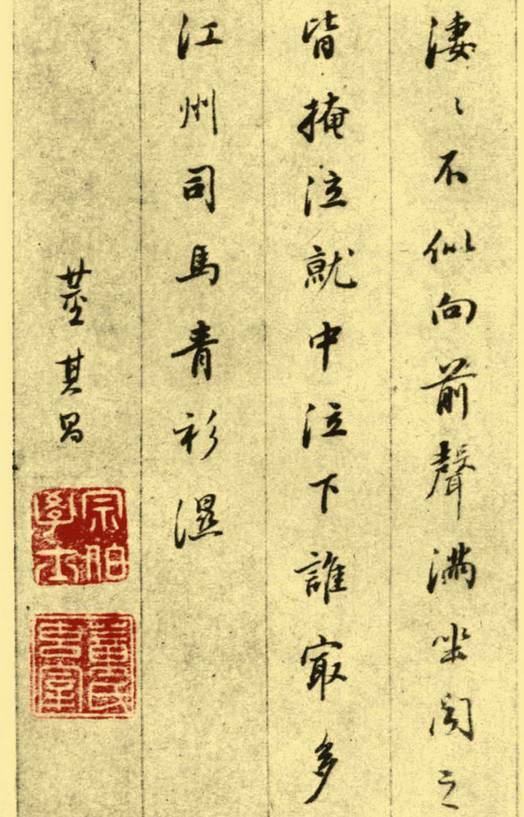 淒々不似向前聲滿坐聞之
皆掩泣就中泣下誰冣多
江州司馬青衫濕
董其昌
宗伯學士
董氏玄宰